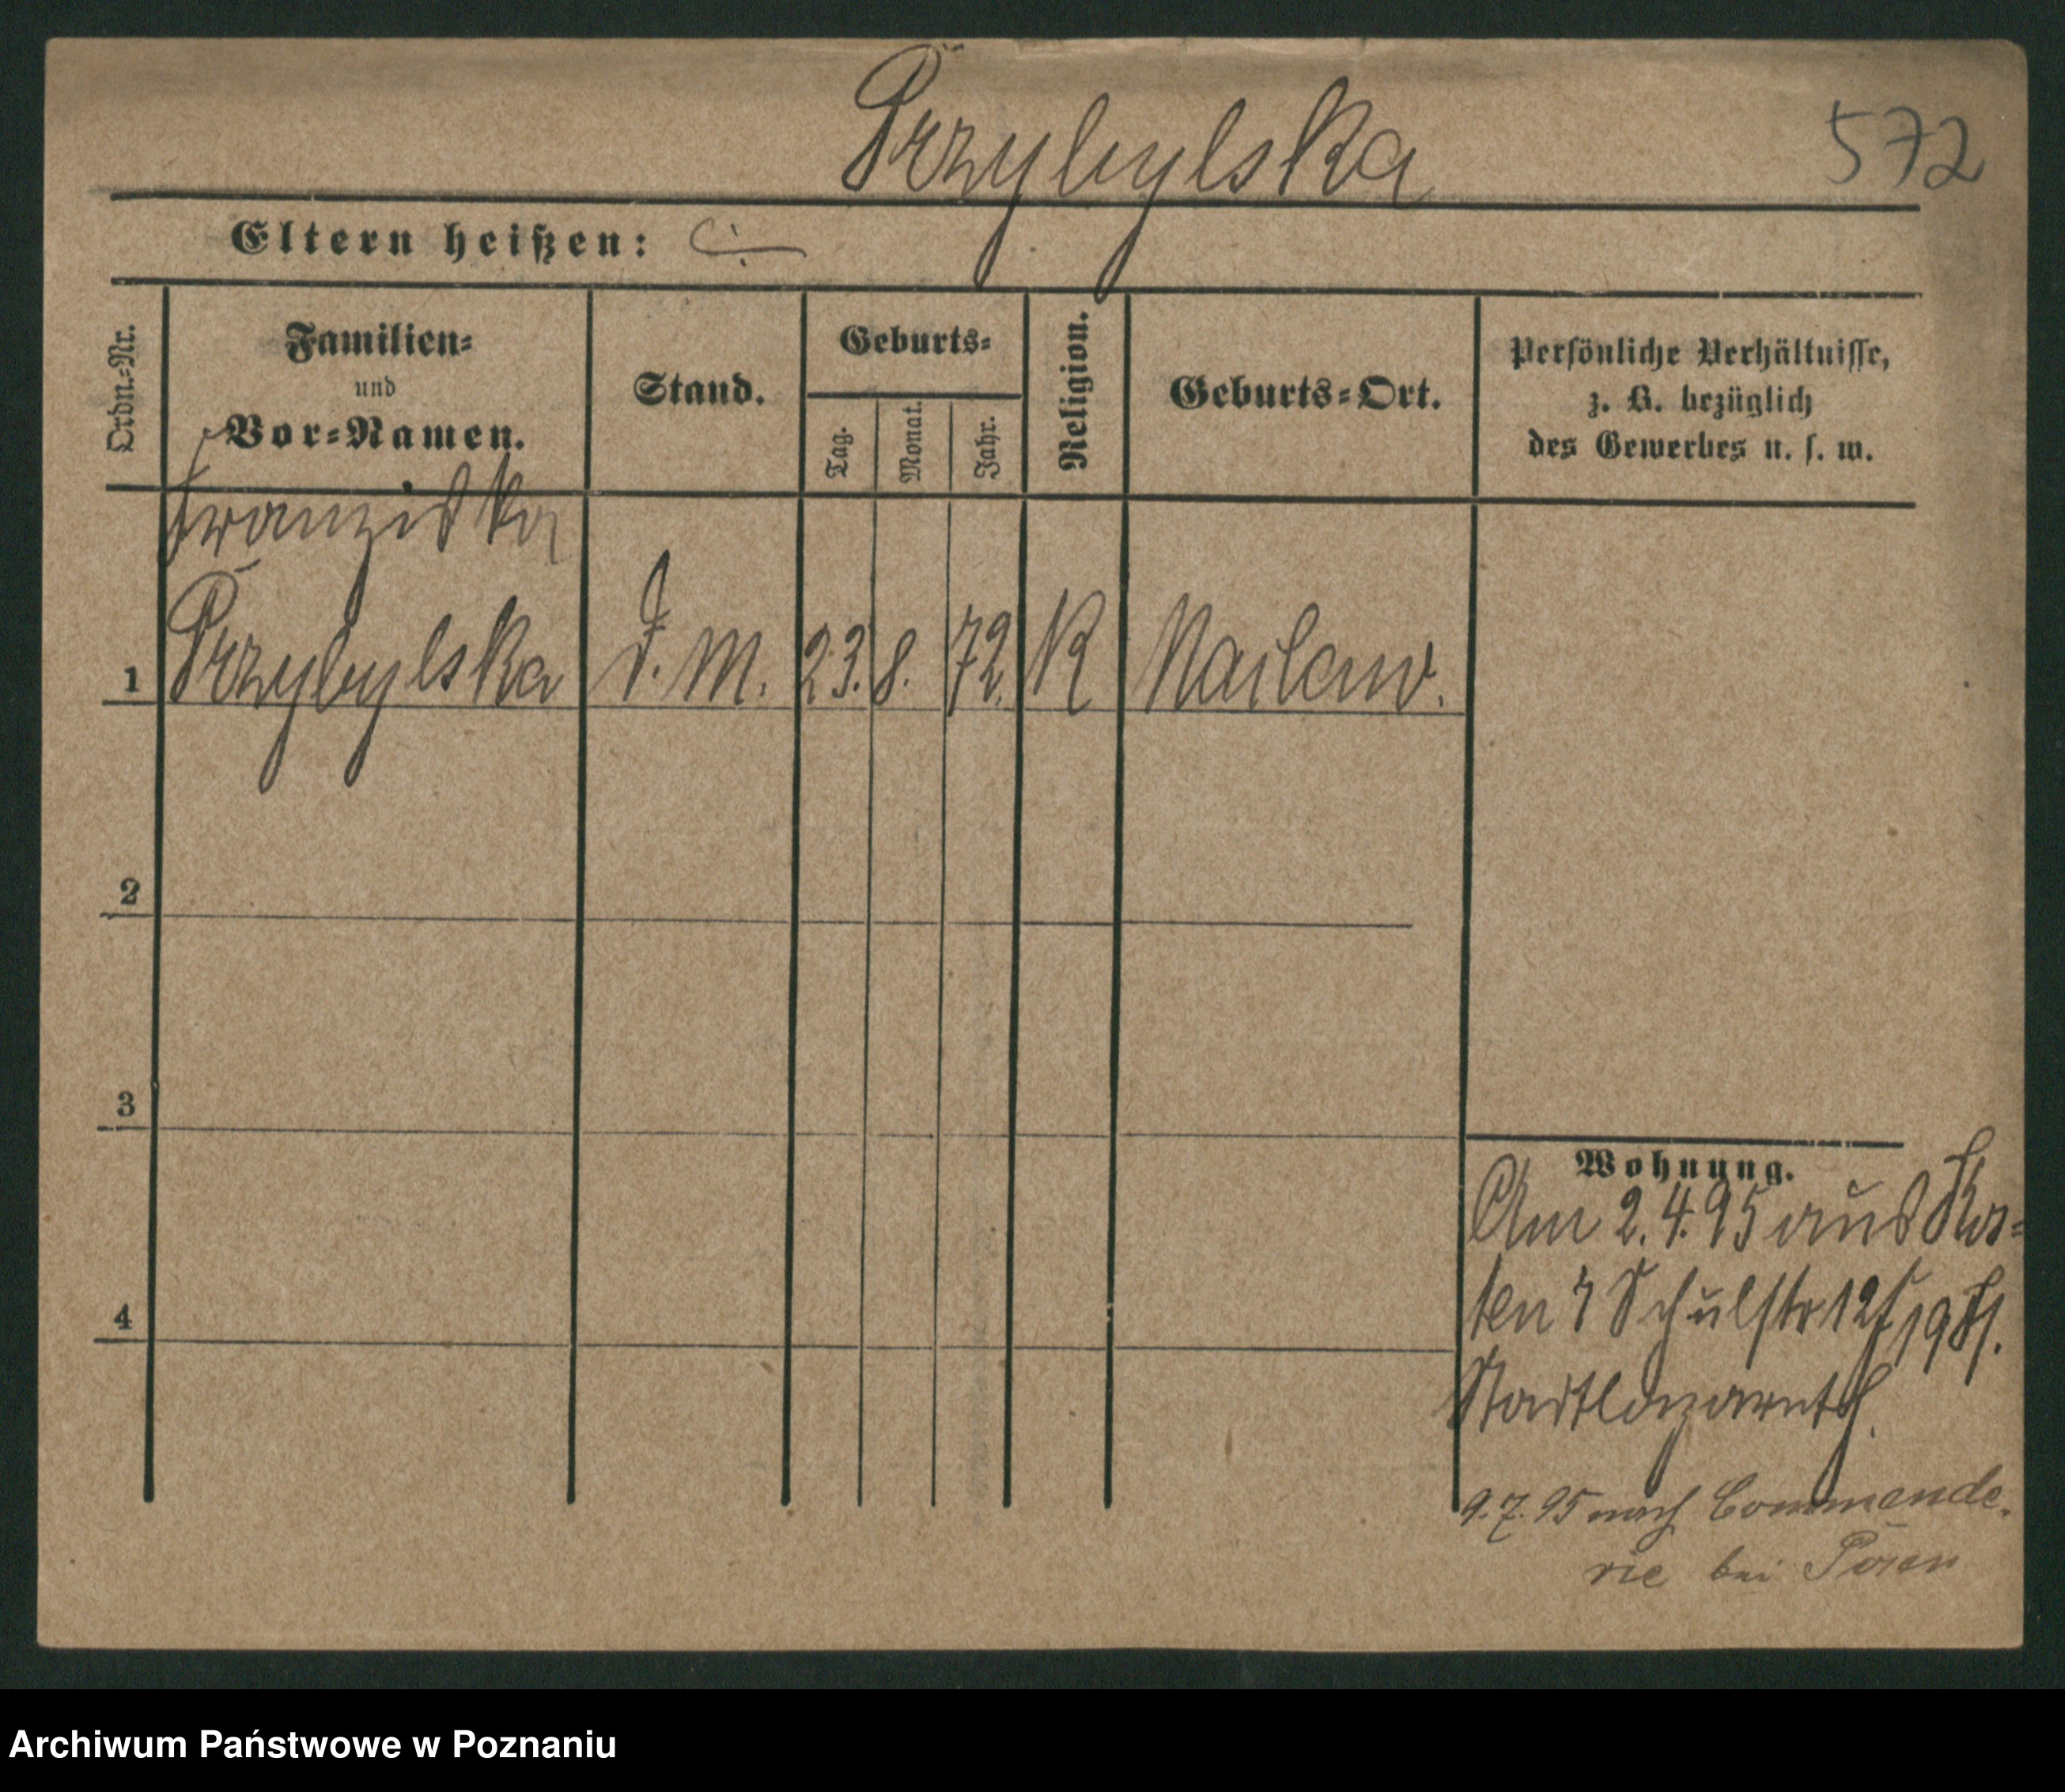 Przybylska
572
Eltern heißen:
Ordn.-Nr.
Familien-
und
Vor-Namen.
Stand.
Geburts-
Tag.
Monat.
Jahr.
Religion.
Geburts-Ort.
Persönliche Verhältnisse,
z. B. bezüglich
des Gewerbes u. s. w.
Franziska
1 Przybylska D. M. 23. 8. 72. K
2
3
4
Wohnung.
Am 2.4.95 aus Kos-
ten Schulstr 12
9.7.95 nach Commande-
rie bei Posen
Archiwum Państwowe w Poznaniu